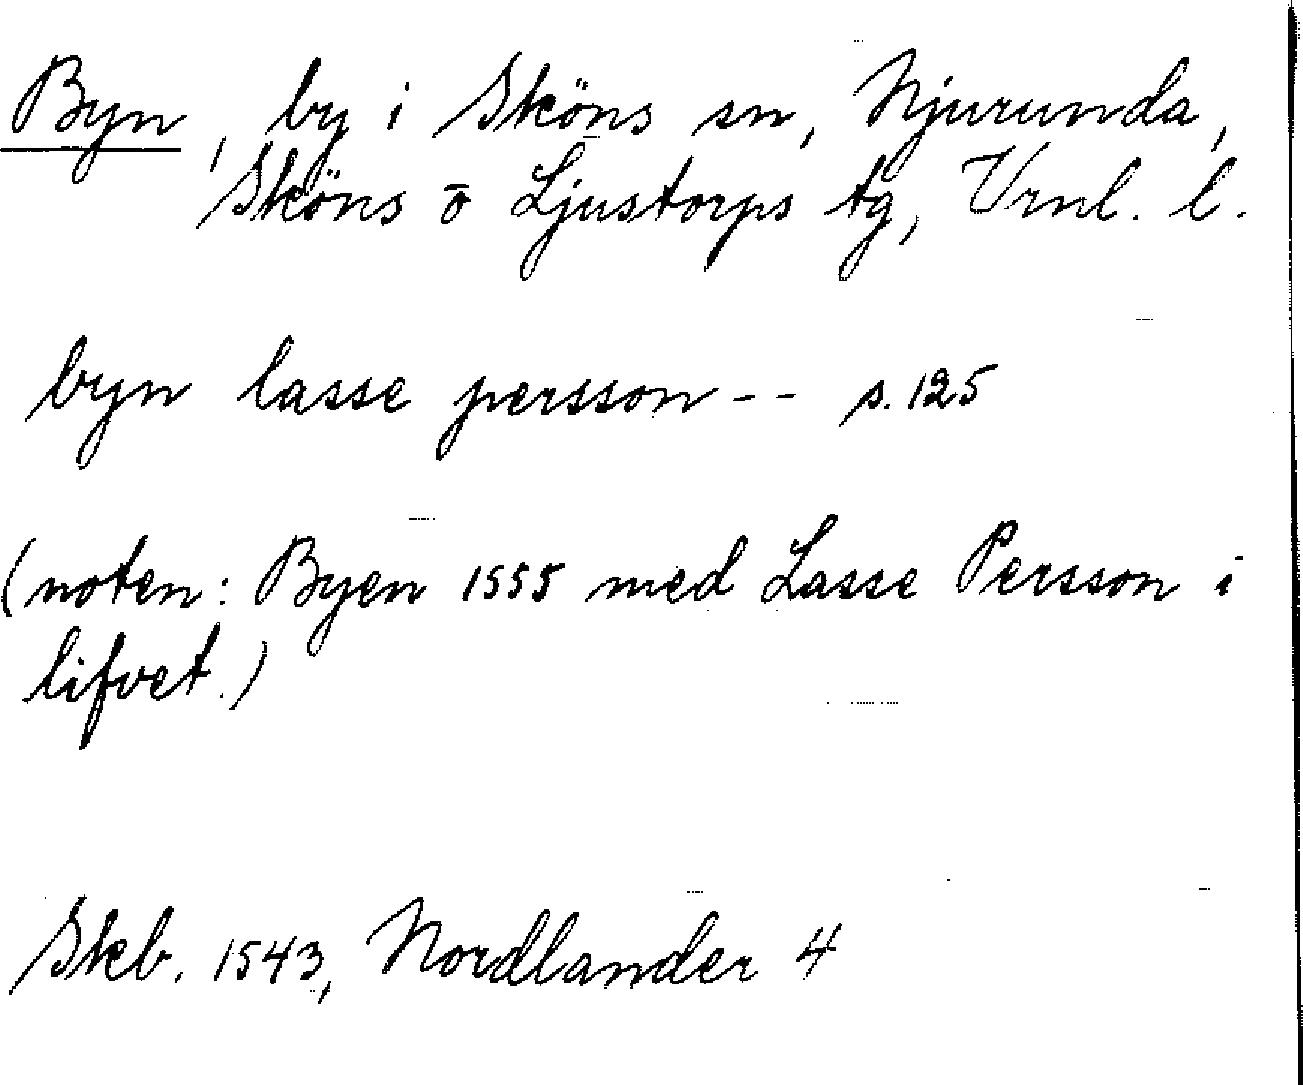 Byn, by i Sköns sn, Njurunda,
Sköns ō Ljustorps tg, Vrnl. l.
byn lasse persson -- s. 125
(noten: Byen 1555 med Lasse Persson i
lifvet.)
Skb. 1543, Nordlander 4